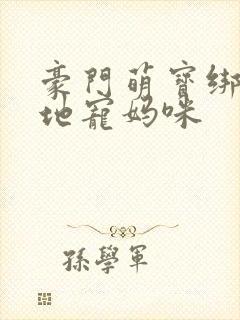 豪門萌寶綁
地寵媽咪
孫學軍